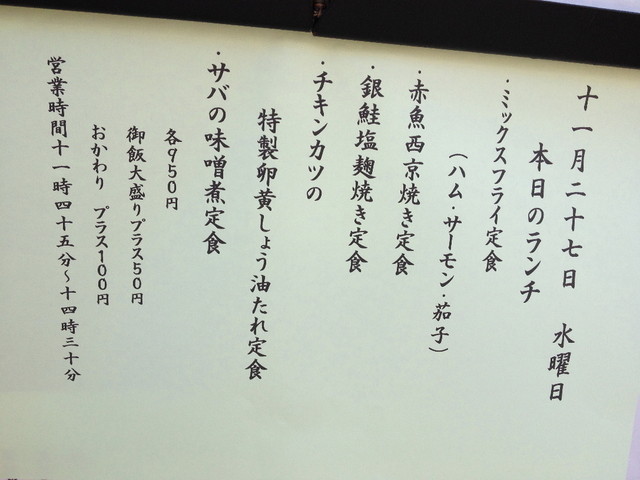 十一月二十七日 水曜日
本日のランチ
・ミックスフライ定食
(ハム・サーモン・茄子)
・赤魚西京焼き定食
・銀鮭塩麹焼き定食
・チキンカツの
特製卵黄しょう油たれ定食
・サバの味噌煮定食
各950円
御飯大盛りプラス50円
おかわり プラス100円
営業時間十一時四十五分~十四時三十分